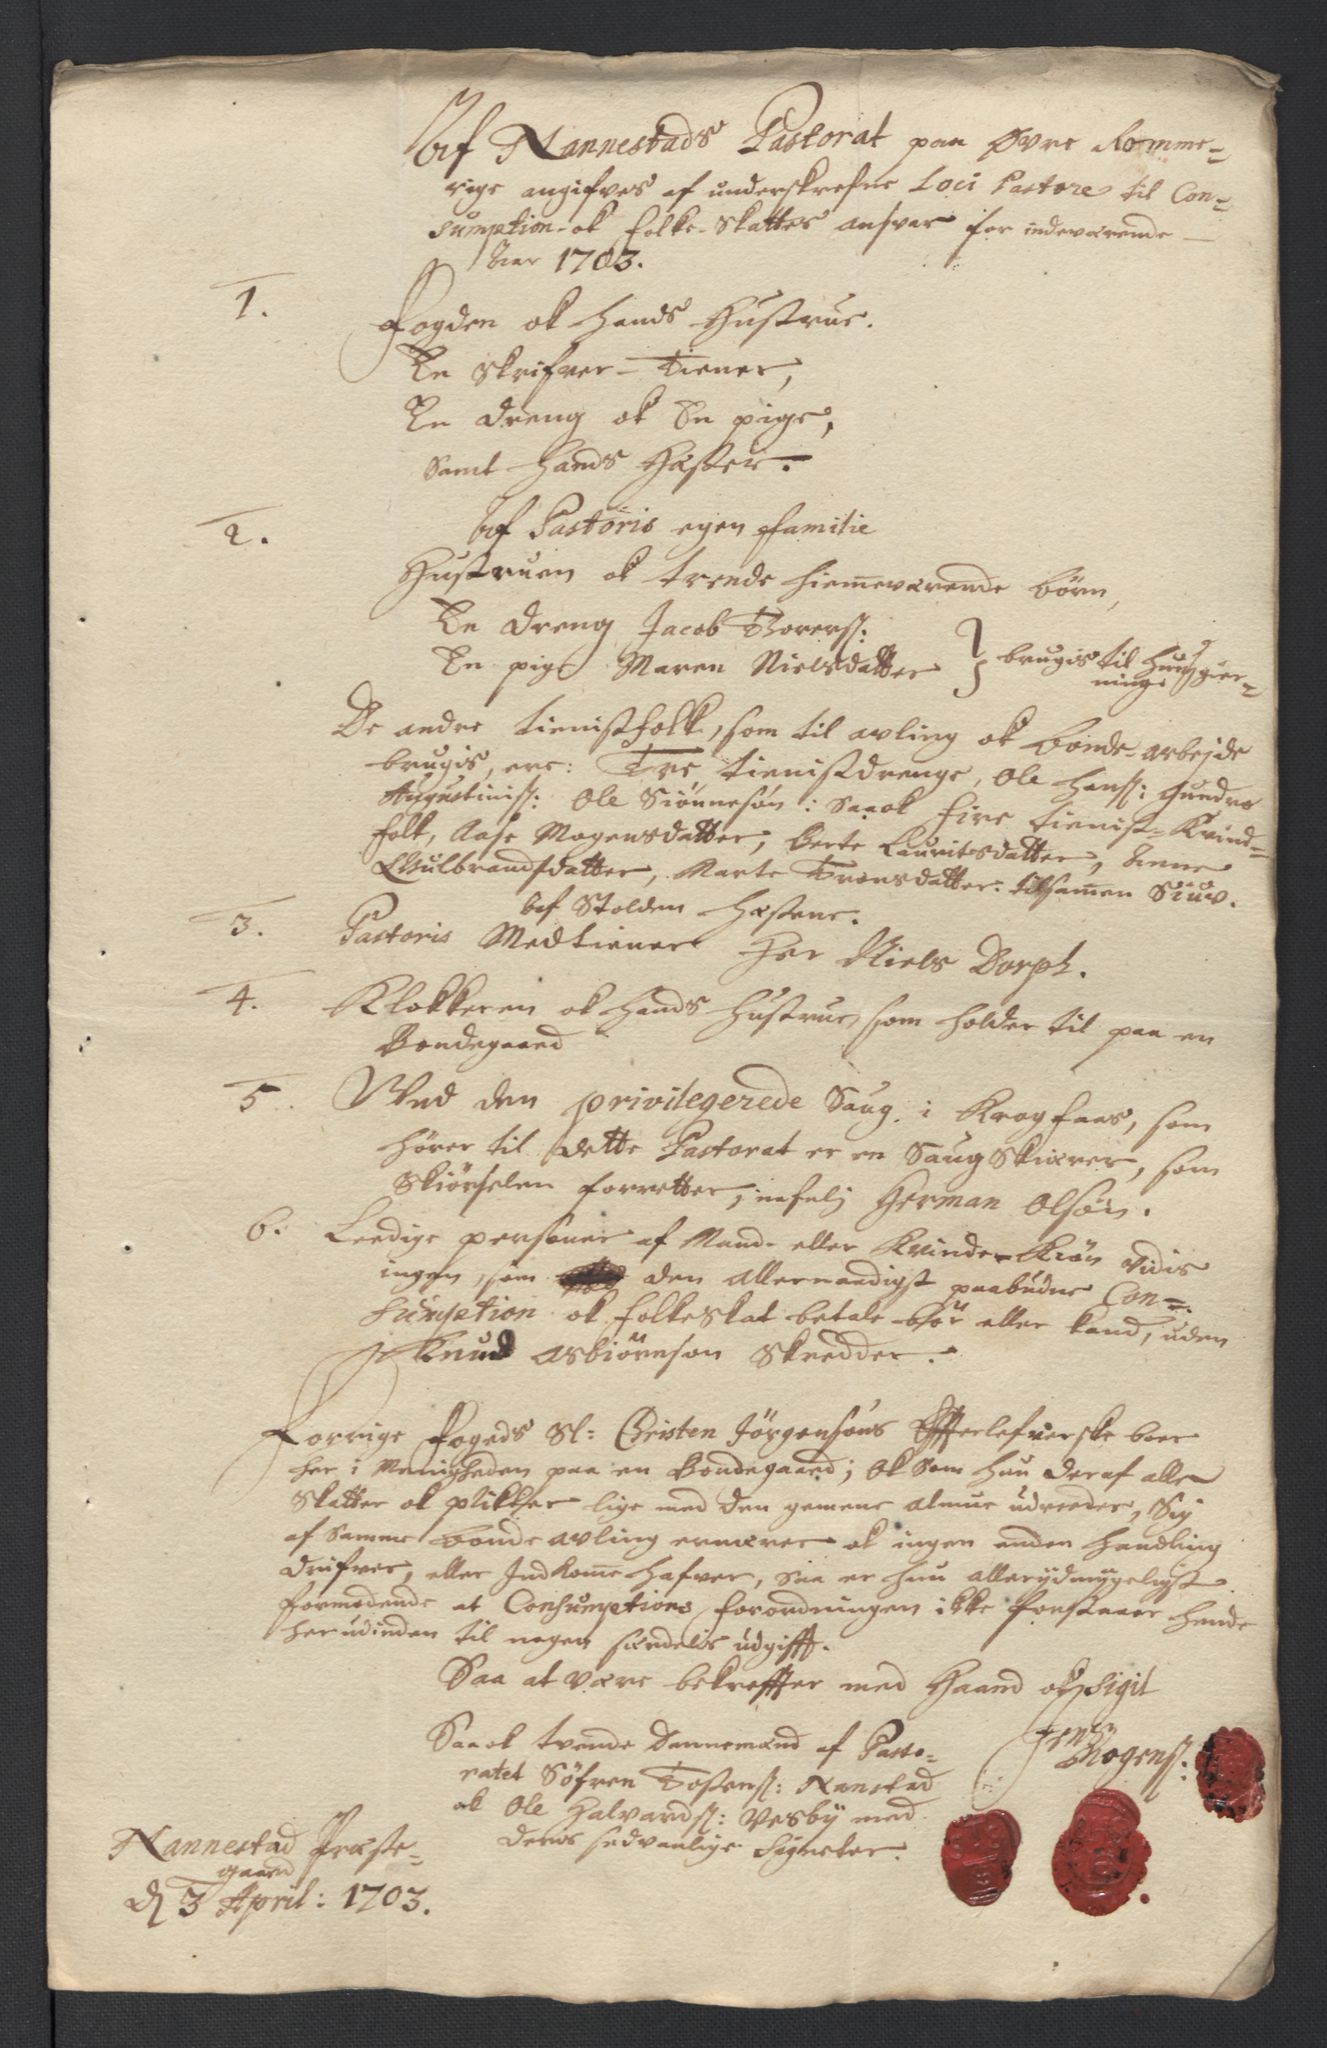 Af Nannestads Pastorat paa Øvre Romme-
rige angifves af underskrefne Loci Pastore til Con-
sumption- ok folke-skattes ansvar for indeværende
Aar 1703.
1. Fogden ok hands Hustrue.
En skrifver-Tiener,
En dreng ok En pige,
samt hands Hæster.
2. Af Pastoris egen familie
Hustruen ok trende hiemeværende børn,
En dreng Jacob Torers:
En pige Maren Nielsdatter } brugis til huusgier-
ninge
De andre tienistfolk, som til avling ok bonde-arbejde
brugis, ere: Tre tienistdrenge, Ole Hans: Gundro
Augustinis: Ole Siønnesøn: saaok fire tienist-kvind-
folk, Aase Mogensdatter, Berte Lauritsdatter, Anne
Gulbrandsdatter, Marte Tronsdatter: tilsamen Siuv.
af Stolden hæstene.
3. Pastoris Medtiener Her Niels Dorph.
4. Klokkeren ok hands hustrue, som holder til paa en
Bondegaard
5. Ved den privilegerede Saug i Krogfaas, som
hører til dette Pastorat er en Saugskiærer, som
Skiørselen forretter, nafnlig Herman Olsøn.
6. Leedige personer af Mand- eller Kvinde-Kiøn vidis
ingen, som den allernaadigst paabudne Con-
sumption ok folkeskat betale bør eller kand, uden
Knud Asbiørnsøn Skredder.
Forrige fogeds Sl: Christen Jörgensøns Effterlefverske boer
her i Menigheden paa en Bondegaard; ok som hun deraf alle
skatter ok plikter lige med den gemene almue udreeder, sig
af samme bonde avling ernærer ok ingen anden handling
drifver, eller Indkome hafver, saa er hun allerydmygeligst
formodende at Consumptions forordningen ikke forstaaer hende
herudinden til nogen særdelis udgifft.
Saa at være bekreffter med Haand ok Sigil
Jens Mogens:
Saaok tvende Dannemænd af Pasto-
ratet Söfren Tostens: Nanstad
ok Ole Halvards: Vesby med
deres sedvanlige Signeter.
Nannestad Præste-
gaard
d 3 April: 1703.